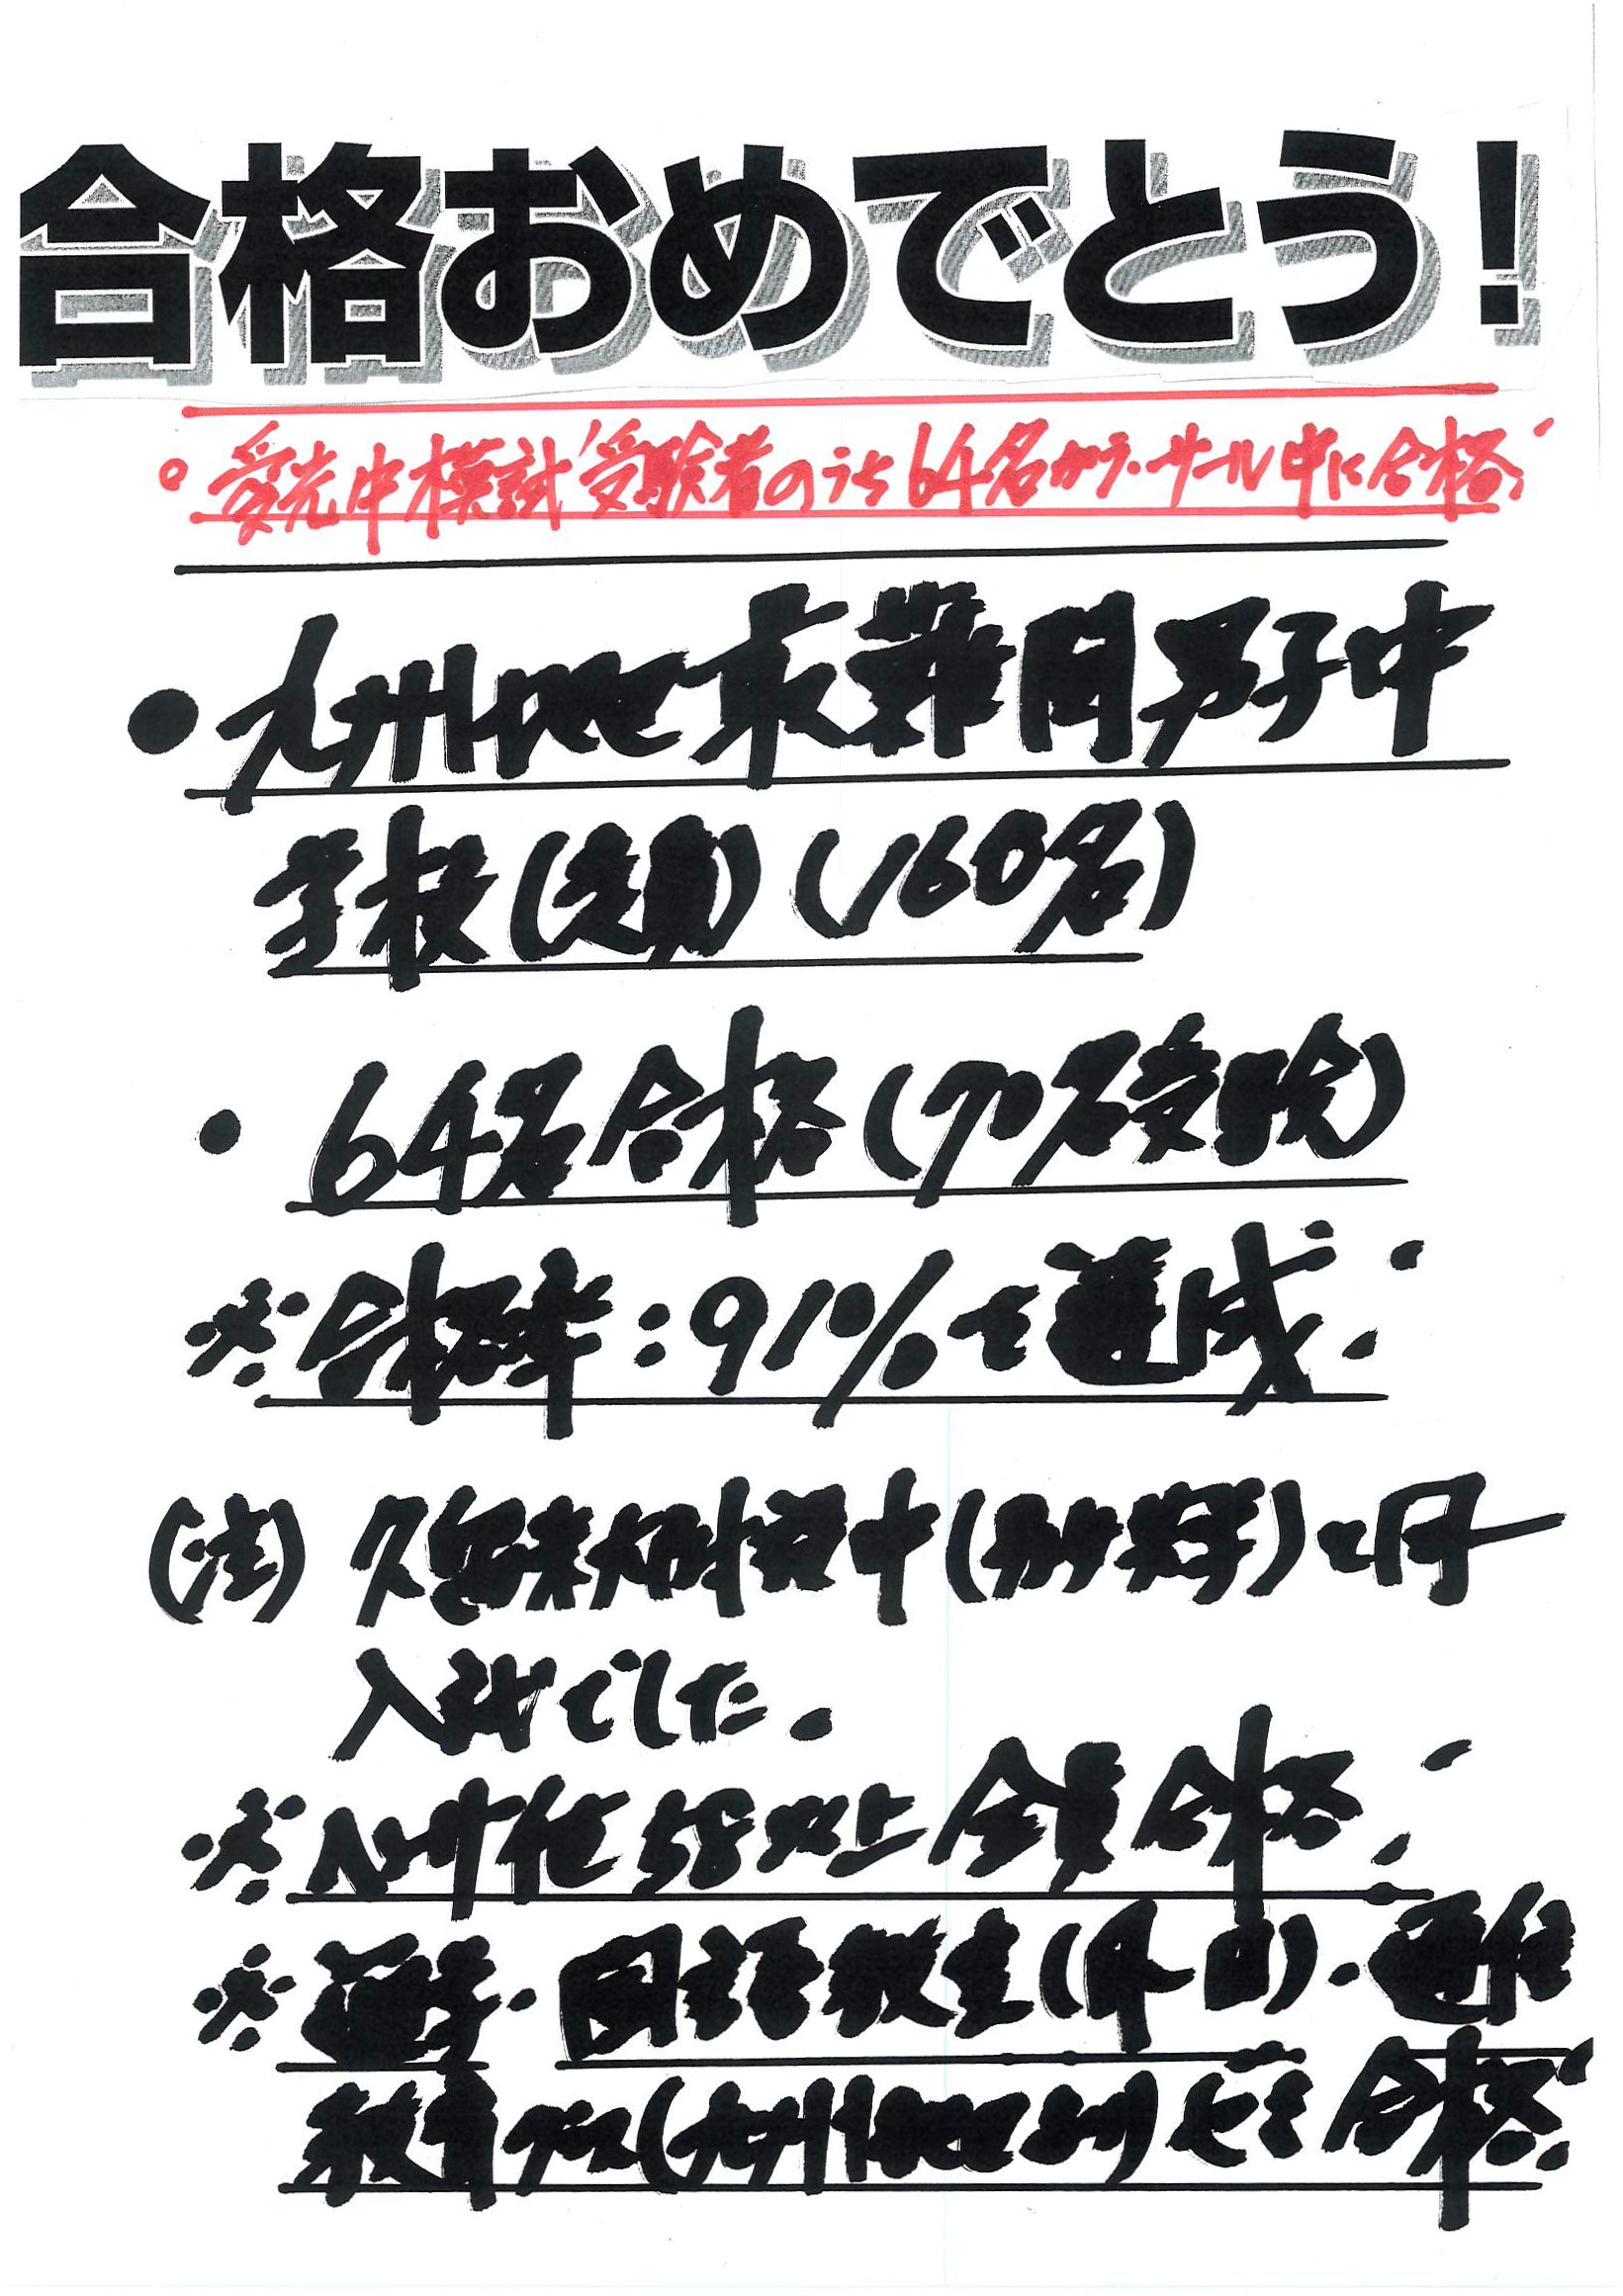 合格おめでとう!
愛光中模試受験者のうち64名がラ・サール中に合格!
・九州地区最難関男子中
学校(定員)(160名)
・64名合格(70名受験)
※合格率:91%を達成!
(注) 久留米大附設中(男女共学)と同一
入試でした。
※N 58以上全員合格!
※ ・国語教室( )・通信
教育 (九州地区 )でも合格!